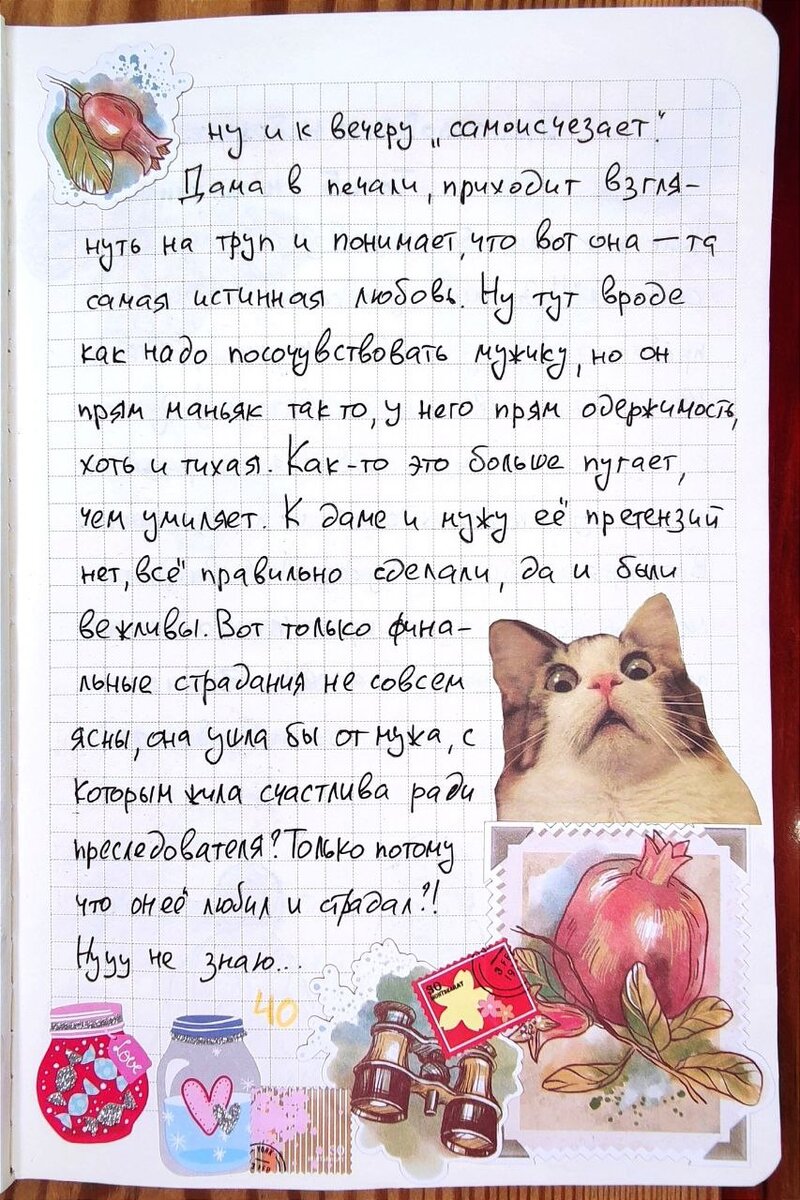 ну и к вечеру „самоисчезает".
Дама в печали, приходит взгля-
нуть на труп и понимает, что вот она — та
самая истинная любовь. Ну тут вроде
как надо посочувствовать мужику, но он
прям маньяк так то, у него прям одержимость,
хоть и тихая. Как-то это больше пугает,
чем умиляет. К даме и мужу её претензий
нет, всё правильно сделали, да и были
вежливы. Вот только фина-
льные страдания не совсем
ясны, она ушла бы от мужа, с
которым жила счастлива ради
преследователя? Только потому
что он её любил и страдал?!
Нууу не знаю...
40
Love
30
MONTSERRAT